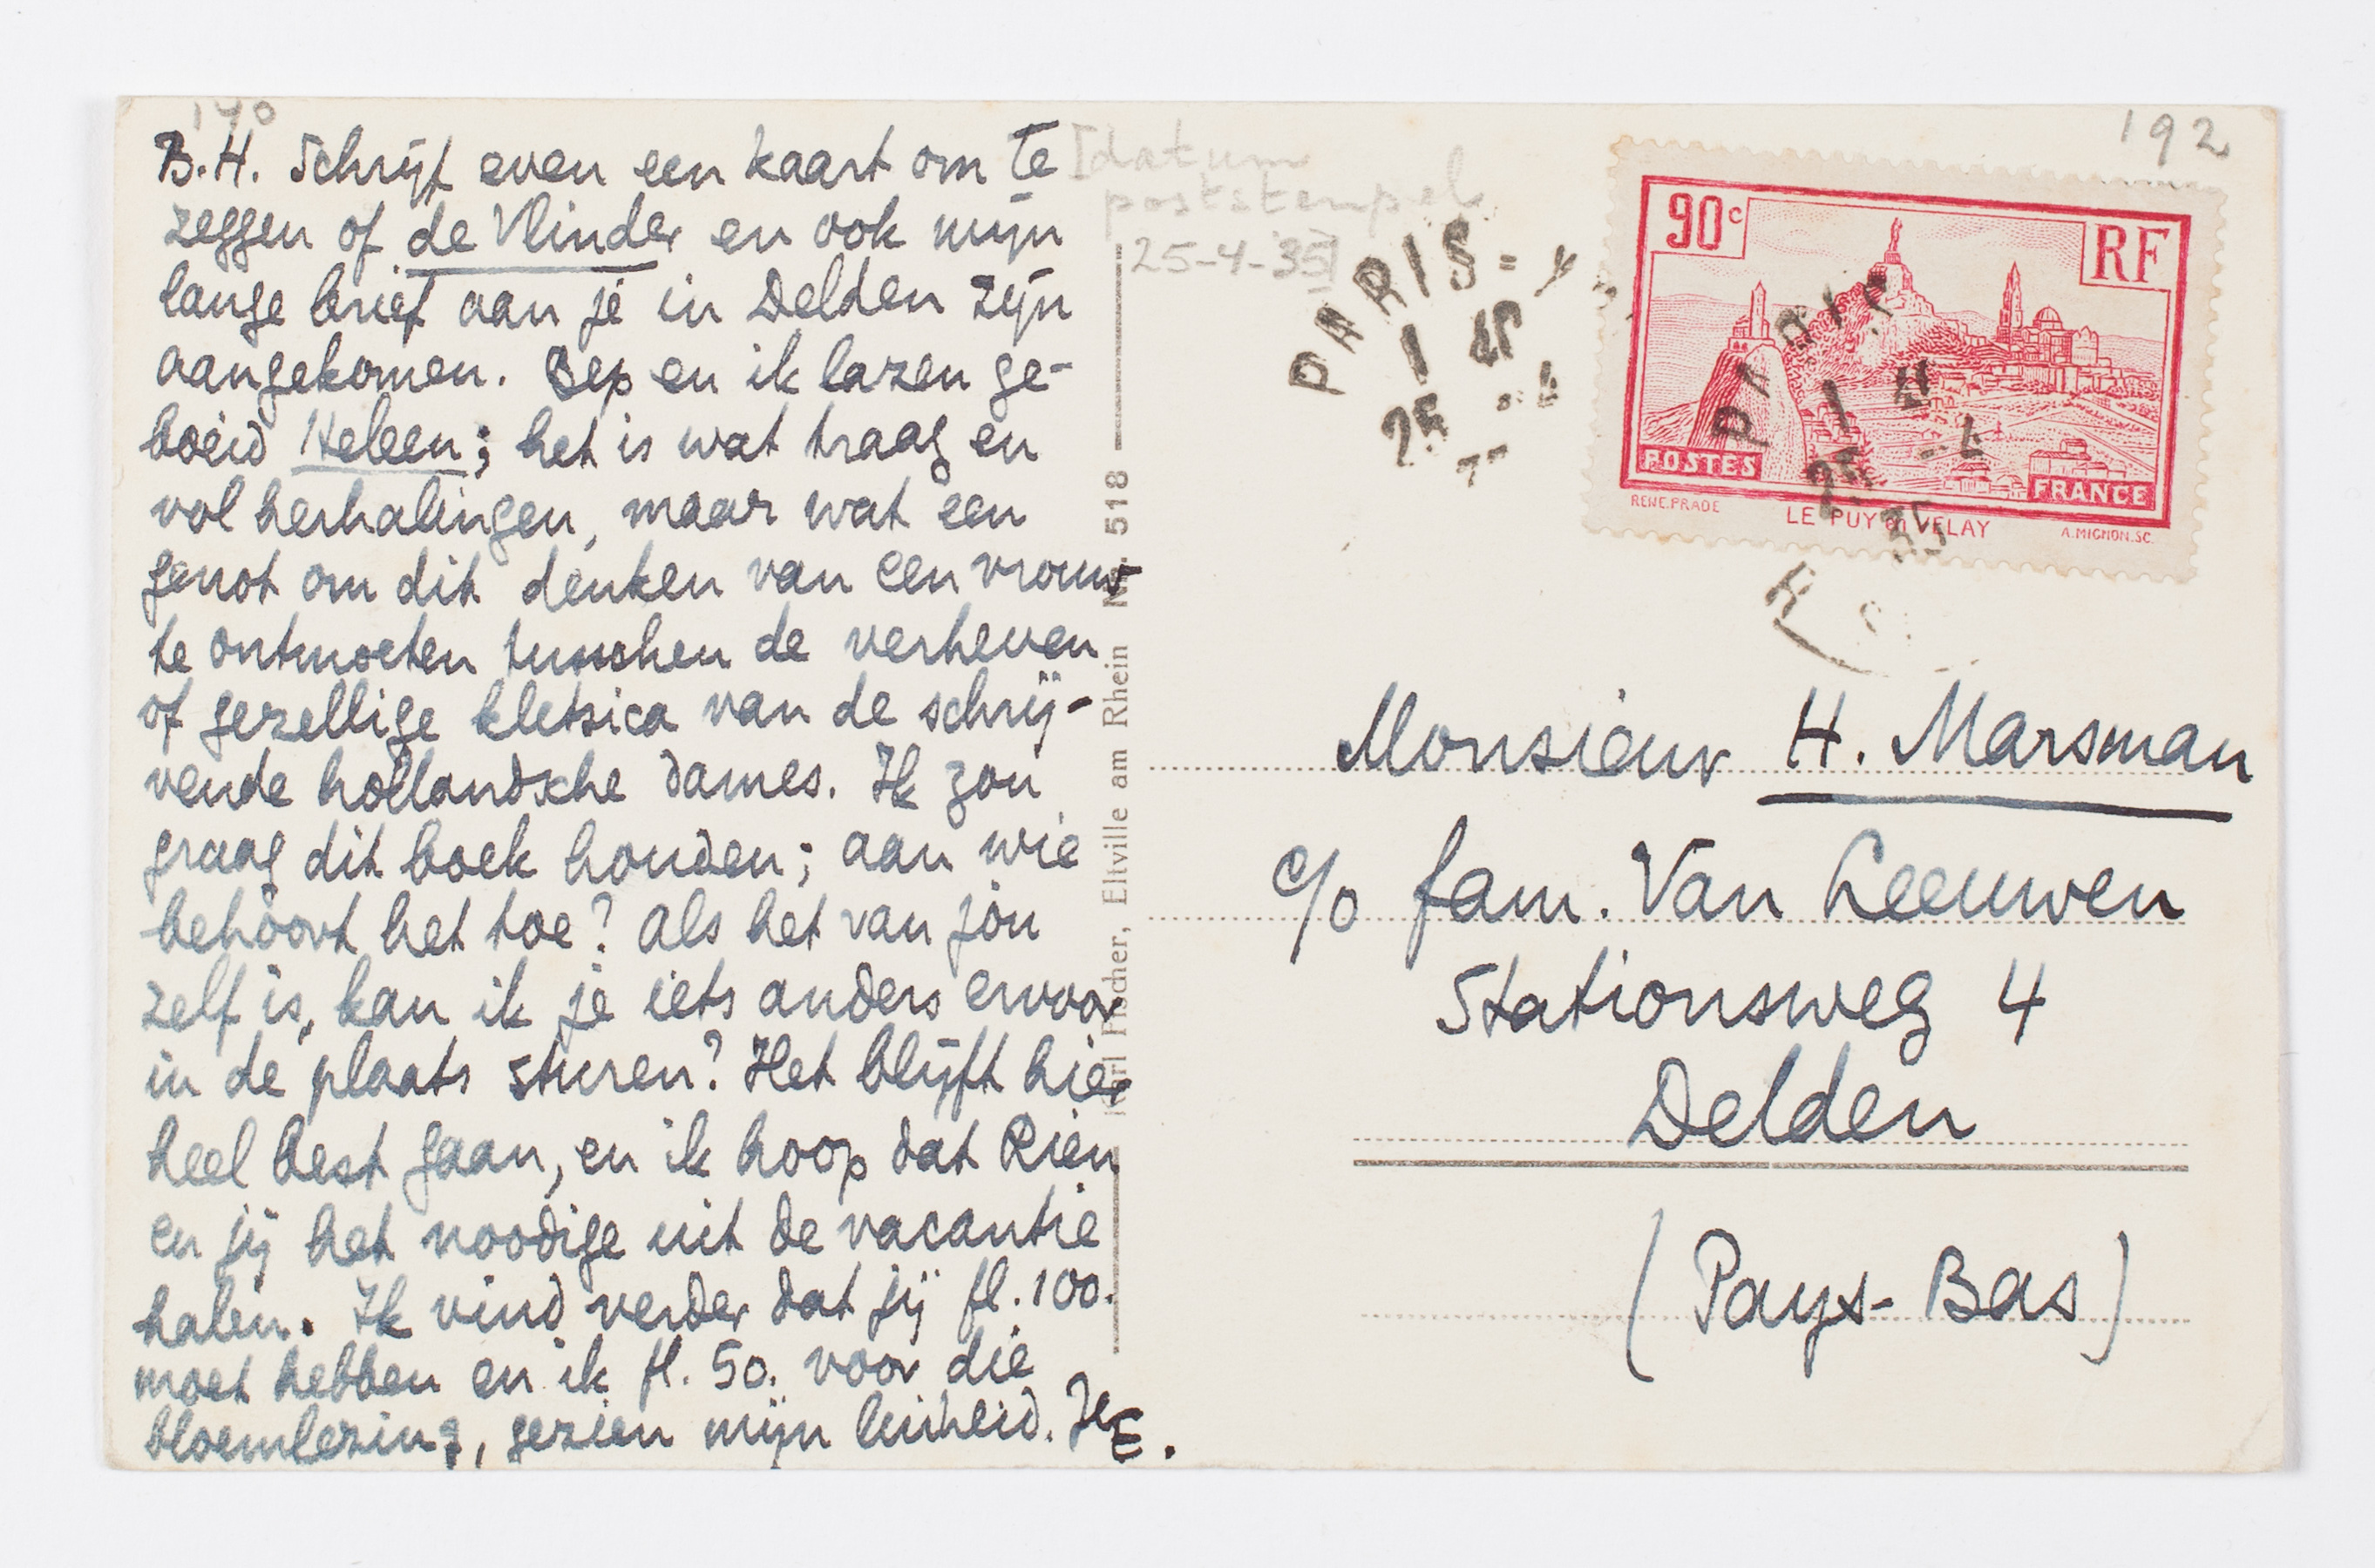 140
B.H. Schrijf even een kaart om te
zeggen of de Vlinder en ook mijn
lange brief aan je in Delden zijn
aangekomen. Bep en ik lazen ge-
boeid Heleen; het is wat traag en
vol herhalingen, maar wat een
genot om dit denken van een vrouw
te ontmoeten tusschen de verheven
of gezellige kletsica van de schrij-
vende hollandsche dames. Ik zou
graag dit boek houden; aan wie
behoort het toe? Als het van jou
zelf is, kan ik je iets anders ervoor
in de plaats sturen? Het blijft hier
heel best gaan, en ik hoop dat Rien
en jij het noodige uit de vacantie
halen. Ik vind verder dat jij fl. 100.
moet hebben en ik fl. 50. voor die
bloemlezing, gezien mijn luiheid. Je
E.
[datum
poststempel
25-4-35]
Nr. 518
Elville am Rhein
192
PARIS
25
90c
RF
POSTES
FRANCE
RENE.PRADE
LE PUY en VELAY
A.MIGNON.SC.
PARIS
25
35
Monsieur H. Marsman
c/o fam. Van Leeuwen
Stationsweg 4
Delden
(Pays-Bas)